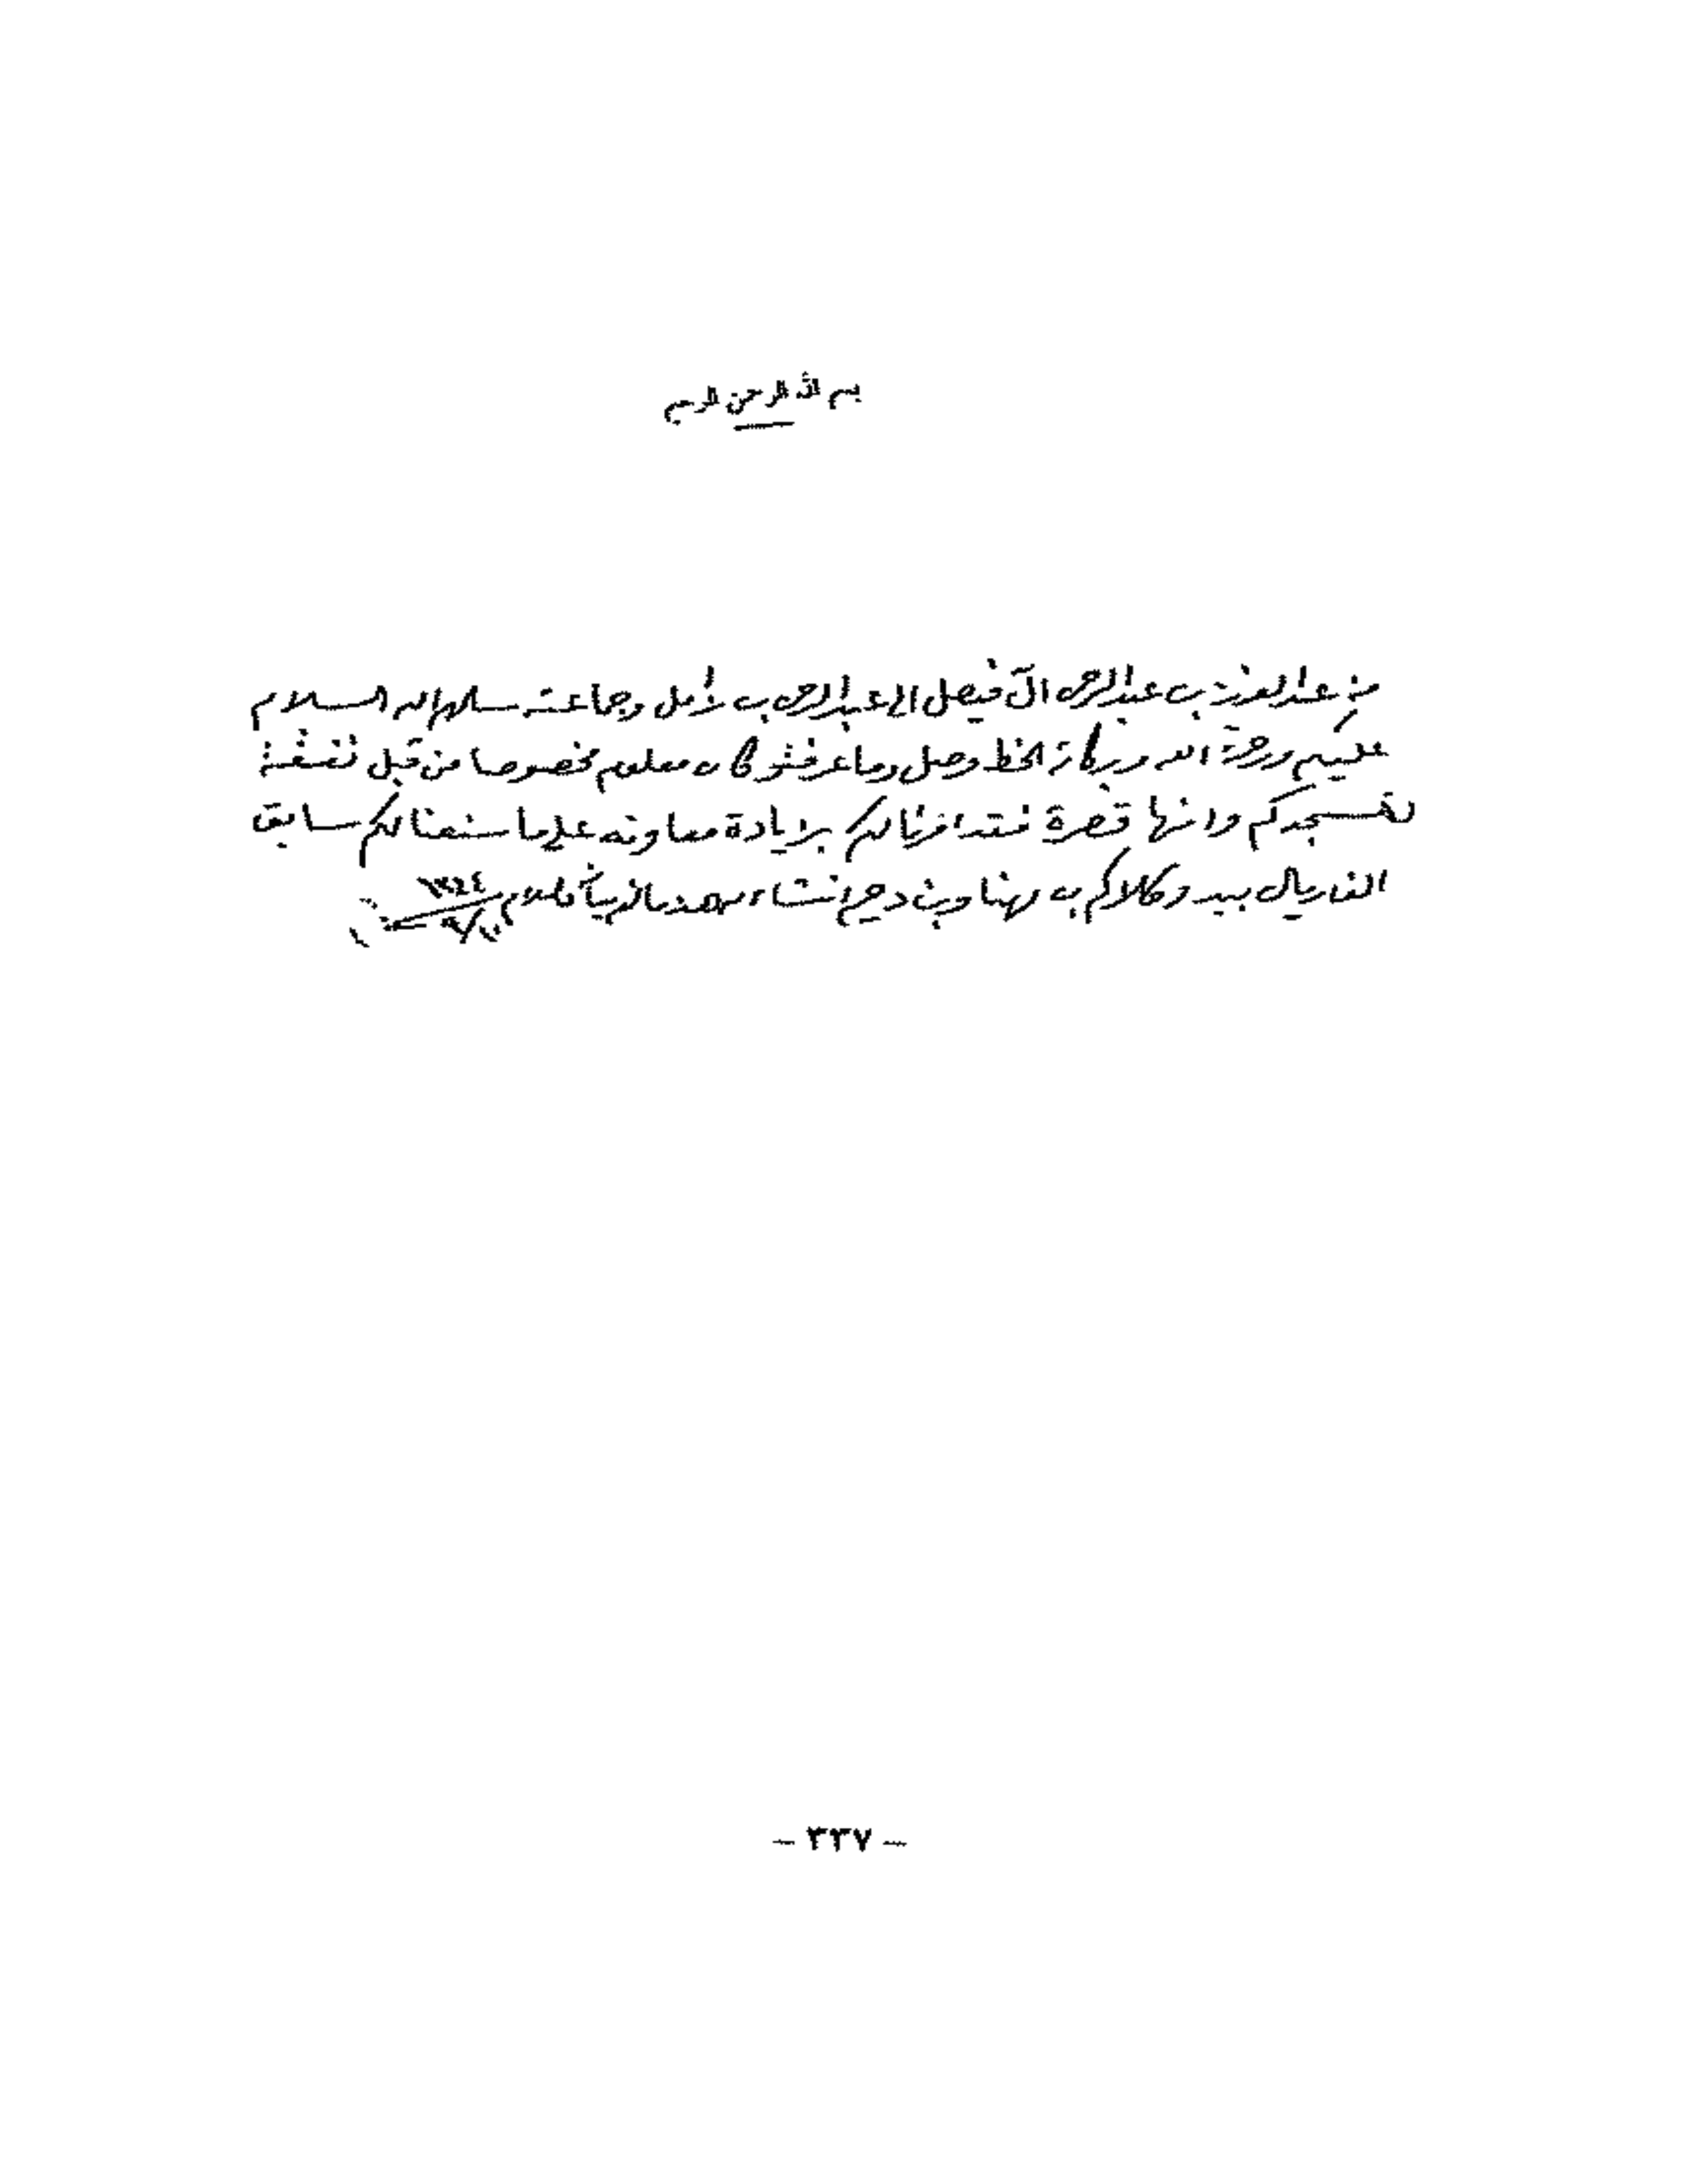 بسم الله الرحمن الرحيم
من عبد العزيز بن عبد الرحمن آل فيصل الى عبد الرحمن بن زامل وجماعته سلمهم الله السلام
عليكم ورحمة الله وبركاته الخط وصل وما عرفتو كان معلوم مخصوصا من قبل نفقة
لمسجدكم وانها قصرة فقد امرنا لكم بزيادة معاونه على ما سنعنا لكم سابق
الفا ريال بيد وكلاكم بن مهنا وبن دحيم انشاء الله والسلام
١٣٦٤
– ٣٣٧ –